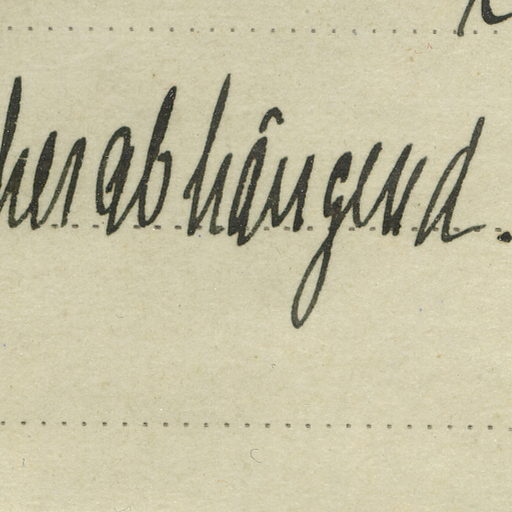 herabhängend.